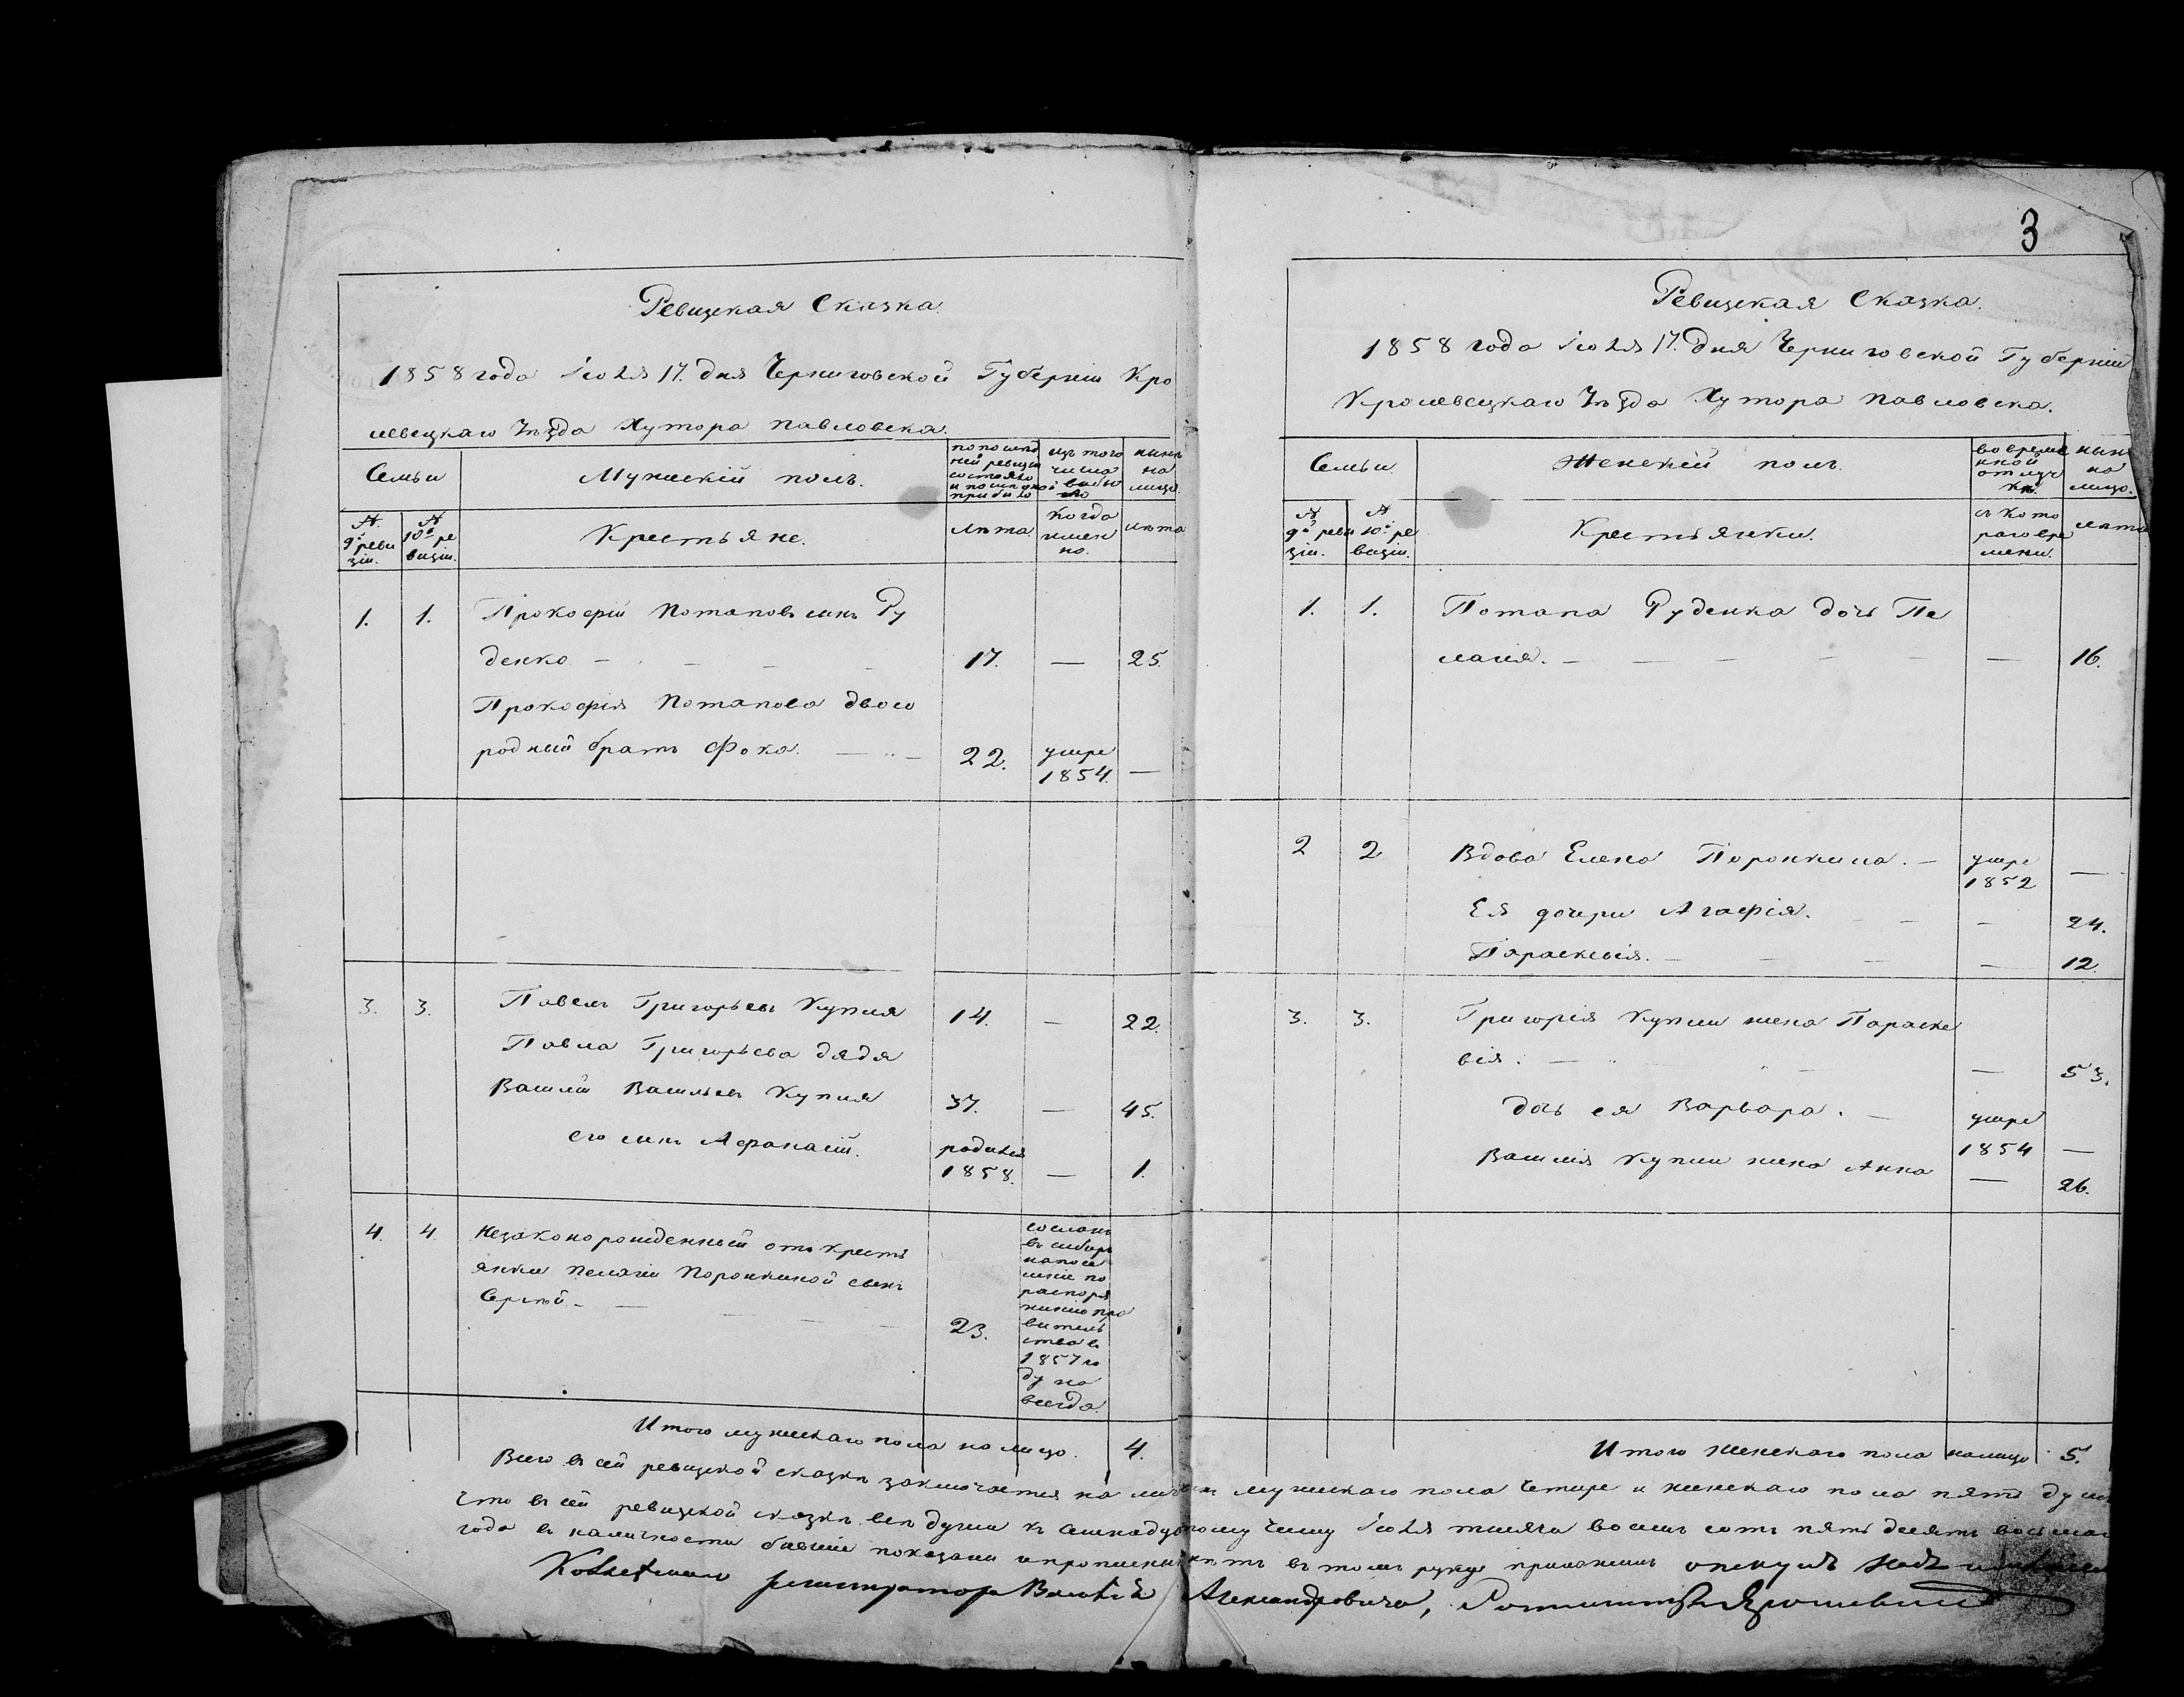 Ревизская Сказка.
1858 года Іюля 17. дня Черниговской Губерніи Кро
левецкаго Уѣзда Хутора Павловска.
Семьи
Мужескій полъ.
по послѣд
ней ревизіи
состояло
и послѣ оной
прибыло
изъ того
числа
выбы
ло
нынѣ
на
лицо
№
9й реви
зіи.
№
10й ре
визіи.
Крестьяне.
Лѣта.
Когда
имен
но.
Лѣта
1. 1. Прокофій Потаповъ сынъ Ру
денко. 17. — 25.
Прокофія Потапова двою
родный братъ Фока. 22. умре
1854. —
3. 3. Павелъ Григорьевъ Купля 14. — 22.
Павла Григорьева дядя
Василій Васильевъ Купля 37. — 45.
его сынъ Афанасій. родился
1858. — 1.
4. 4. Незаконорожденный отъ кресть
янки Пелагіи Поронкиной сынъ
Сергѣй. 23.
сосланъ
въ сибирь
на посе
леніе по
распоря
женію пра
витель
ства въ
1857 го
ду на
всегда.
Итого мужескаго пола на лицо. 4.
3
Ревизская Сказка.
1858 года Іюля 17. дня Черниговской Губерніи
Кролевецкаго Уѣзда Хутора Павловска.
Семьи
Женскій полъ.
во време
нной
отлуч
кѣ.
нынѣ
на
лицо.
№
9й реви
зіи.
№
10й ре
визіи.
Крестьянки.
съ кото
раго вре
мени.
лѣта
1. 1. Потапа Руденка дочь Пе
лагія. — 16.
2 2 Вдова Елена Поронкина. умре
1852 —
Ея дочери Агафія. — 24.
Параскевія. — 12.
3. 3. Григорія Купли жена Параске
вія. — 53.
дочь ея Варвара. умре
1854 —
Василія Купли жена Анна — 26.
Итого женскаго пола налицо 5.
Всего въ сей ревизской сказкѣ заключается на лицо мужескаго пола четыре и женскаго пола пять душъ
что въ сей ревизской сказкѣ всѣ души къ семнадцатому числу Іюля тысяча восемь сотъ пять десятъ восьмаго
года въ наличности бывшіе показаны и прописныхъ нѣтъ въ томъ руку приложилъ опекунъ надъ имѣніемъ
Александровича,